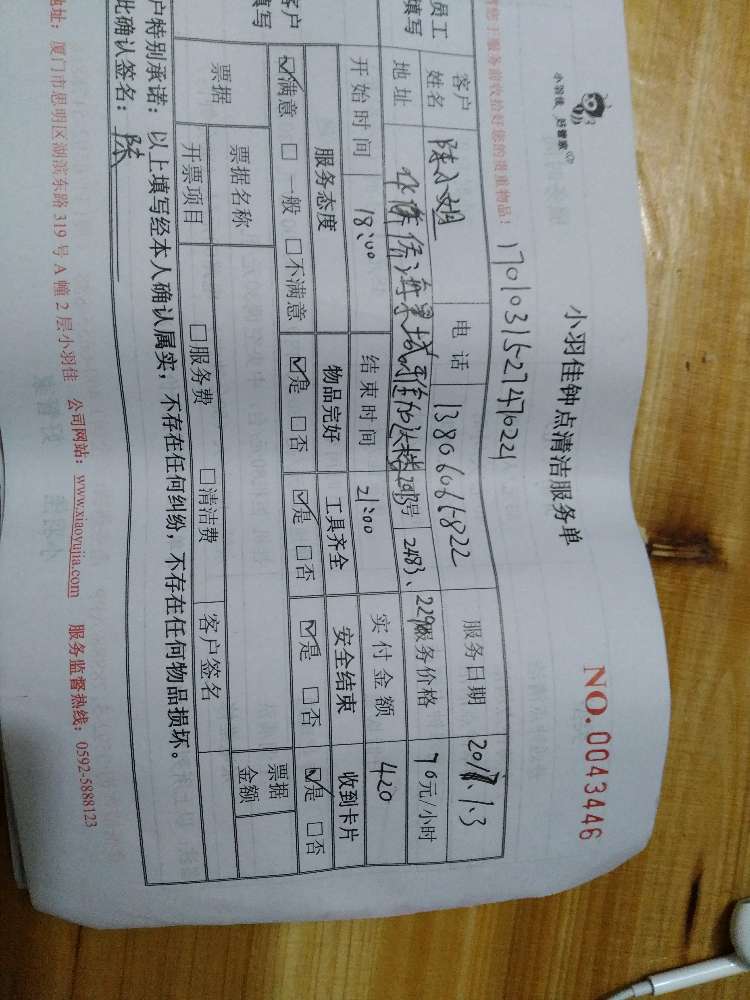 小羽佳 好管家
小羽佳钟点清洁服务单
NO.0043446
您于服务前收拾好您的贵重物品!
17010315-27476224
员工填写
客户姓名 电话 服务日期 2017.1.3
地址 2483、229 服务价格 70元/小时
开始时间 18:00 结束时间 21:00 实付金额 420
客户填写
服务态度 物品完好 工具齐全 安全结束 收到卡片
☑满意 □一般 □不满意 ☑是 □否 ☑是 □否 ☑是 □否 ☑是 □否
票据 票据名称 票据金额
开票项目 □服务费 □清洁费 客户签名
户特别承诺:以上填写经本人确认属实,不存在任何纠纷,不存在任何物品损坏。
此确认签名:陈
地址:厦门市思明区湖滨东路 319 号 A 幢 2 层小羽佳 公司网站:www.xiaoyujia.com 服务监督热线:0592-5888123